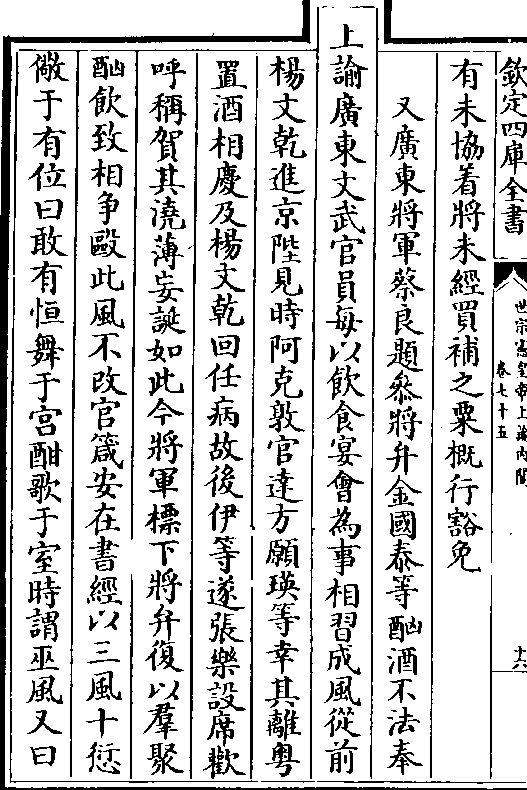 欽定四庫全書
世宗憲皇帝上諭內閣
卷七十五
十六
有未協着將未經買補之粟概行豁免
又廣東將軍蔡良題叅將弁金國泰等酗酒不法奉
上諭廣東文武官員每以飲食宴會為事相習成風從前
楊文乾進京陛見時阿克敦官達方願瑛等幸其離粤
置酒相慶及楊文乾回任病故後伊等遂張樂設席歡
呼稱賀其澆薄妄誕如此今將軍標下將弁復以羣聚
酗飲致相争毆此風不改官箴安在書經以三風十愆
儆于有位曰敢有恒舞于宫酣歌于室時謂巫風又曰